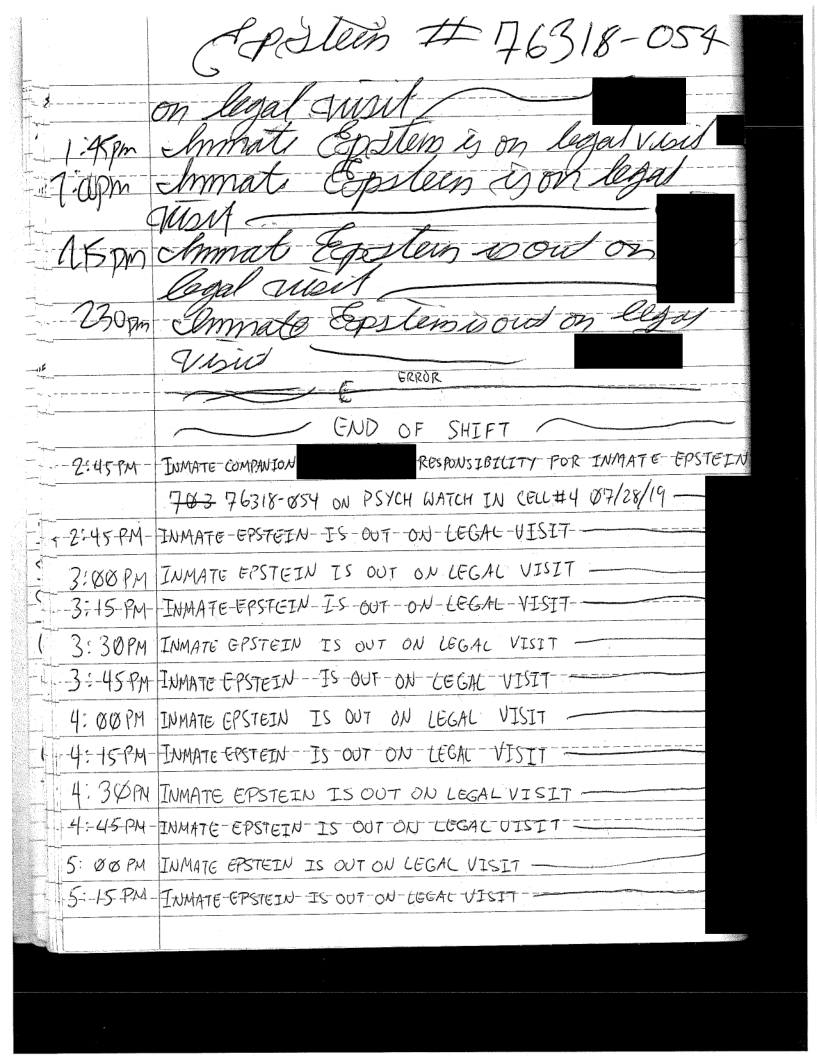 Epstein # 76318-054
on legal visit
1:45pm Inmat Epstein is on legal visit
Inmat Epstein is on legal
visit
Inmat Epstein is out on
legal visit
230pm Inmate Epstein is out on legal
visit
ERROR
E
END OF SHIFT
2:45 PM INMATE COMPANION RESPONSIBILITY FOR INMATE EPSTEIN
703 76318-054 ON PSYCH WATCH IN CELL #4 07/28/19
2:45 PM INMATE EPSTEIN IS OUT ON LEGAL VISIT
3:00 PM INMATE EPSTEIN IS OUT ON LEGAL VISIT
3:15 PM INMATE EPSTEIN IS OUT ON LEGAL VISIT
3:30PM INMATE EPSTEIN IS OUT ON LEGAL VISIT
3:45PM INMATE EPSTEIN IS OUT ON LEGAL VISIT
4:00PM INMATE EPSTEIN IS OUT ON LEGAL VISIT
4:15PM INMATE EPSTEIN IS OUT ON LEGAL VISIT
4:30PM INMATE EPSTEIN IS OUT ON LEGAL VISIT
4:45PM INMATE EPSTEIN IS OUT ON LEGAL VISIT
5:00 PM INMATE EPSTEIN IS OUT ON LEGAL VISIT
5:15 PM INMATE EPSTEIN IS OUT ON LEGAL VISIT